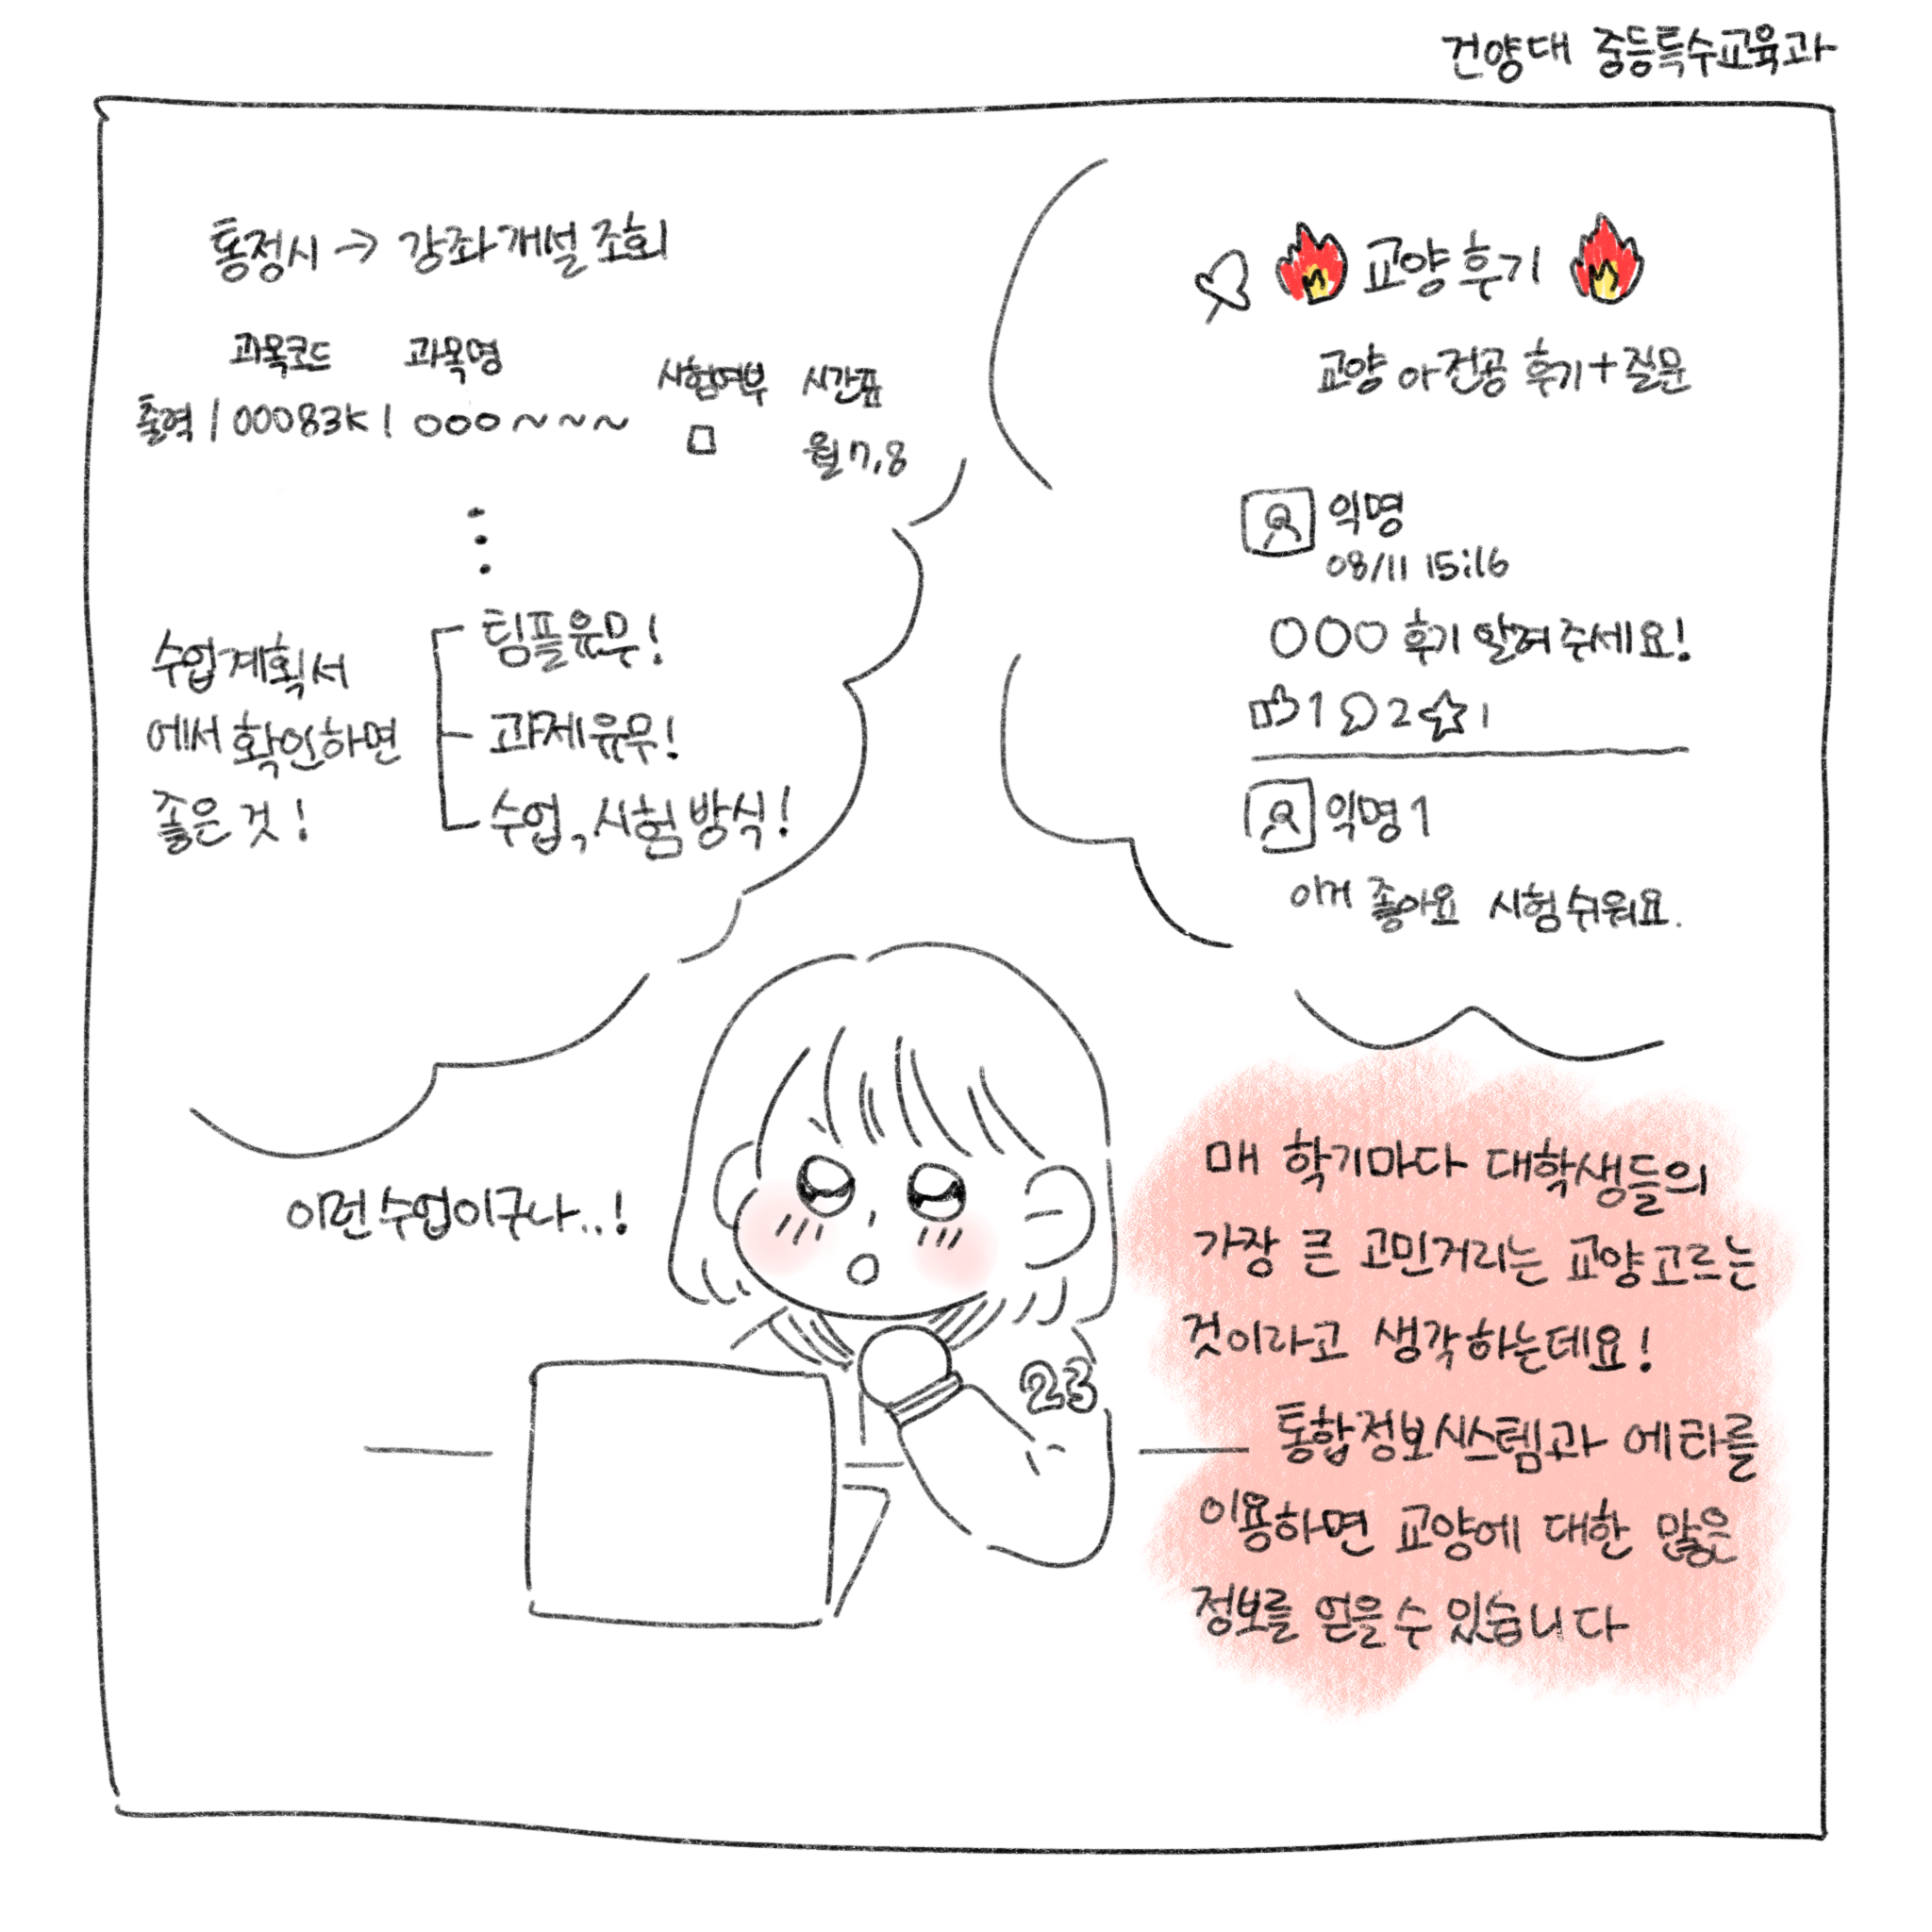 건양대 중등특수교육과
통정시 → 강좌개설조회
과목코드 과목명 시험여부 시간표
출력 | 00083K | ○○○~~~ □ 월7,8
수업계획서
에서 확인하면
좋은 것!
팀플유무!
과제유무!
수업, 시험 방식!
교양후기
교양 아 전공 후기+질문
익명
08/11 15:16
○○○ 후기 알려주세요!
1 2 1
익명1
이거 좋아요 시험쉬워요.
이런수업이구나..!
23
매 학기마다 대학생들의
가장 큰 고민거리는 교양고르는
것이라고 생각하는데요!
통합정보시스템과 에타를
이용하면 교양에 대한 많은
정보를 얻을수 있습니다